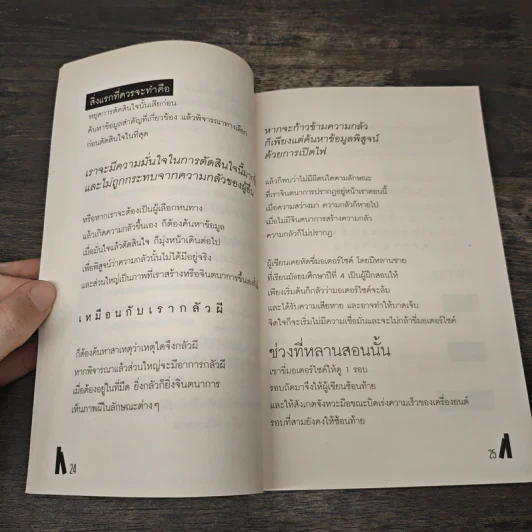 สิ่งแรกที่ควรจะทำคือ
หยุดการตัดสินใจนั้นเสียก่อน
ค้นหาข้อมูลสำคัญที่เกี่ยวข้อง แล้วพิจารณาทางเลือก
ก่อนตัดสินใจในที่สุด
เราจะมีความมั่นใจในการตัดสินใจนี้มาก
และไม่ถูกกระทบจากความกลัวของผู้อื่น
หรือหากเราจะต้องเป็นผู้เลือกหนทาง
แล้วเกิดความกลัวขึ้นเอง ก็ต้องค้นหาข้อมูล
เมื่อมั่นใจแล้วตัดสินใจ ก็มุ่งหน้าเดินต่อไป
เพื่อพิสูจน์ว่าความกลัวนั้นไม่ได้มีอยู่จริง
และส่วนใหญ่เป็นภาพที่เราสร้างหรือจินตนาการขึ้น
เหมือนกับเรากลัวผี
ก็ต้องค้นหาสาเหตุว่าเหตุใดจึงกลัวผี
หากพิจารณาแล้วส่วนใหญ่จะมีอาการกลัวผี
เมื่อต้องอยู่ในที่มืด ยิ่งกลัวก็ยิ่งจินตนาการ
เห็นภาพผีในลักษณะต่างๆ
24
หากจะก้าวข้ามความกลัว
ก็เพียงแต่ค้นหาข้อมูลพิสูจน์
ด้วยการเปิดไฟ
แล้วก็พบว่าไม่มีผีตนใดตามลักษณะ
ที่เราจินตนาการปรากฏอยู่หน้าเราตอนนี้
เมื่อความสว่างมา ความกลัวก็หายไป
เมื่อไม่มีจินตนาการสร้างความกลัว
ความกลัวก็ไม่ปรากฏ
ผู้เขียนเคยหัดขี่มอเตอร์ไซค์ โดยมีหลานชาย
ที่เรียนมัธยมศึกษาปีที่ 4 เป็นผู้ฝึกสอนให้
เพียงเริ่มต้นก็กลัวว่ามอเตอร์ไซค์จะล้ม
และได้รับความเสียหาย และอาจทำให้บาดเจ็บ
จิตใจก็จะเริ่มไม่มีความเชื่อมั่นและจะไม่กล้าขี่มอเตอร์ไซค์
ช่วงที่หลานสอนนั้น
เขาขี่มอเตอร์ไซค์ให้ดู 1 รอบ
รอบถัดมาจึงให้ผู้เขียนซ้อนท้าย
และให้สังเกตจังหวะมือขณะบิดเร่งความเร็วของเครื่องยนต์
รอบที่สามยังคงให้ซ้อนท้าย
25